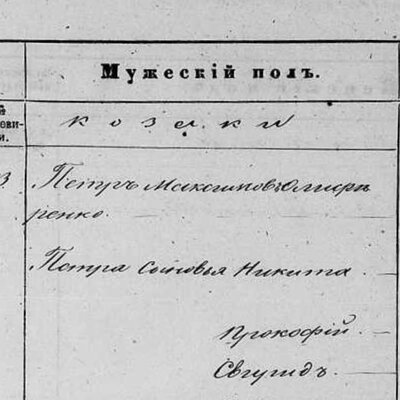 Мужескій полъ.
еви-
и.
козаки
3
Петръ Максимовъ Омир
ренко.
Петра сыновья Никита
Прокофій.